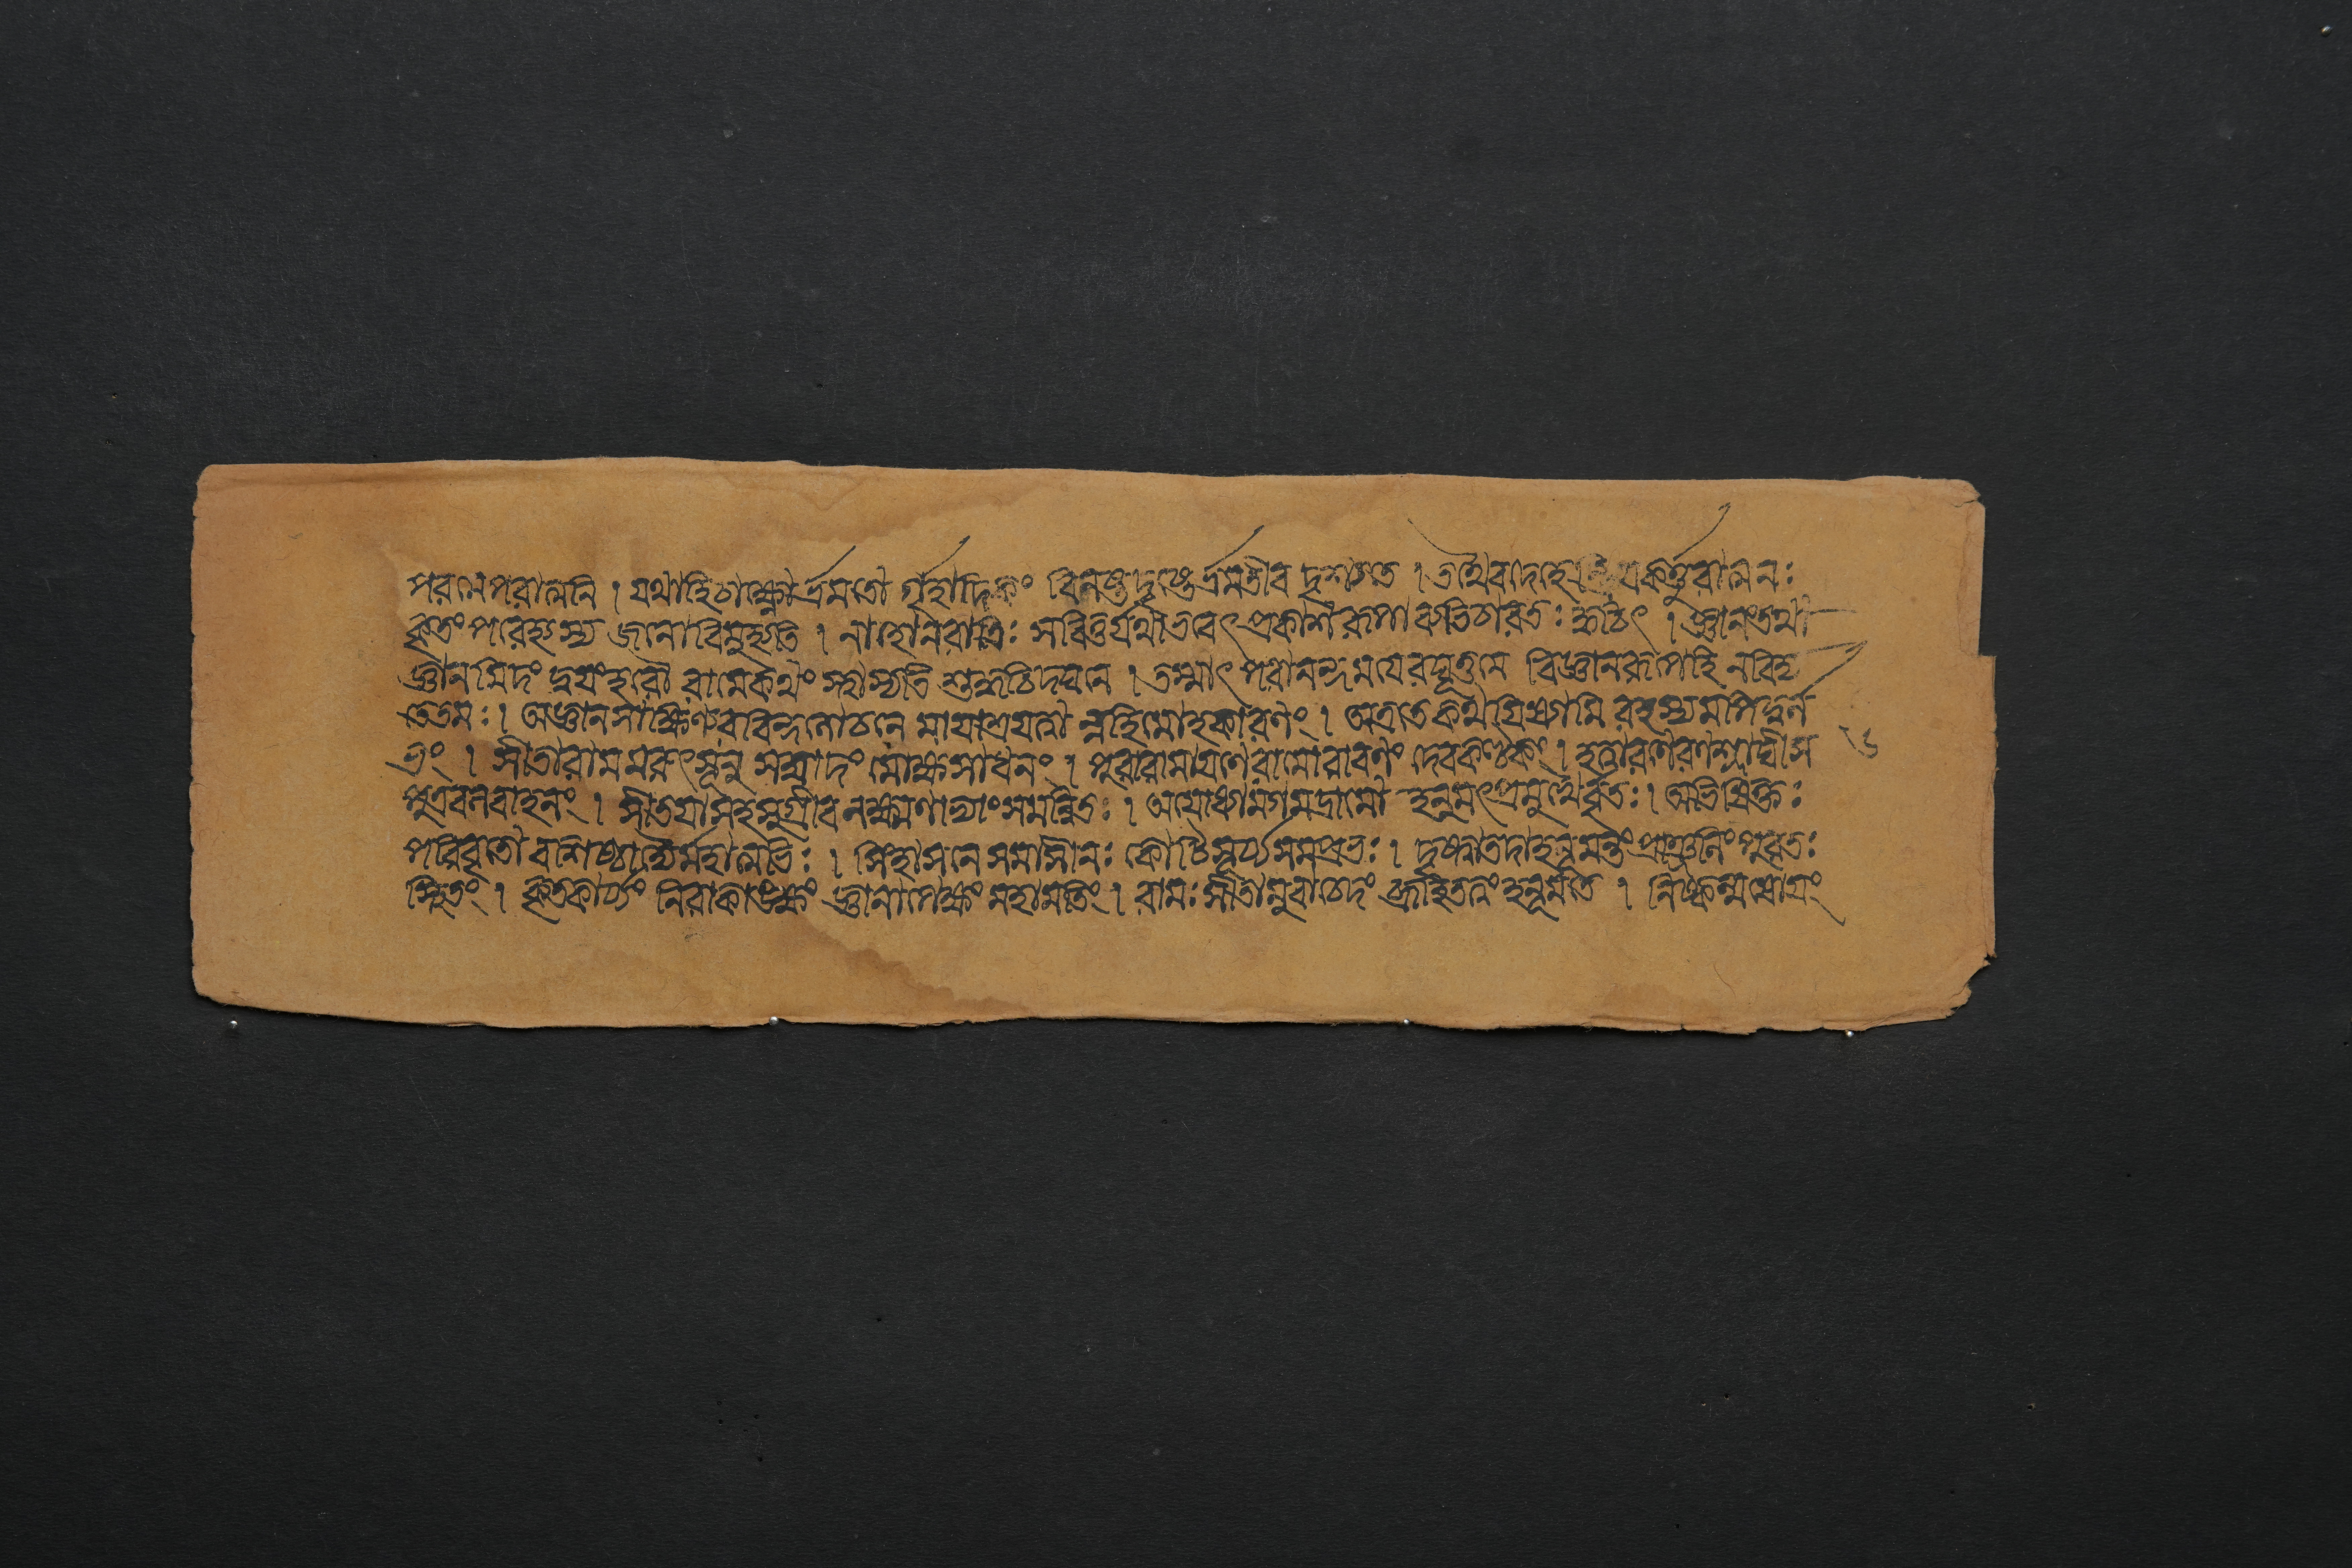 পরত্মপরাত্মনি । যথাহিচাক্ষ্ণাভ্রমতা গৃহাদিকং বিনষ্টদৃষ্টের্ভ্রমতীব দৃশ্যতে । তথৈবদেহেন্দ্রিযকর্তুরাত্মনঃ
কৃতং পরেধ্যস্য জনোবিমুহ্যতি । নাহোনরাত্রিঃ সবিতুর্যথাভবেৎ প্রকাশরূপাব্যভিচারতঃ ক্বচিৎ । জ্ঞানংতথা
জ্ঞানমিদং দ্বযংহরৌ রামেকথং স্থাস্যতি শুদ্ধচিদ্ঘনে । তস্মাৎ পরানন্দমযেরঘূত্তমে বিজ্ঞানরূপেহি নবিদ্য
তেতমঃ । অজ্ঞানসাক্ষিণ্যরবিন্দলোচনে মাযাশ্রযত্বা ন্নহিমোহকারণং । অত্রতেকথযিষ্যামি রহস্যমপিদুর্ল
ভং । সীতারামমরুৎসূনু সম্বাদং মোক্ষসাধনং । পুরারামাযণেরামোরাবণং দেবকণ্টকং । হত্বারণেরণশ্লাঘী স
পুত্রবলবাহনং । সীতযাসহসুগ্রীব লক্ষ্মণাভ্যাংসমন্বিতঃ । অযোধ্যামগমদ্রামো হনুমৎপ্রমুখৈর্বৃতঃ । অভিষিক্তঃ
পরিবৃতো বশিষ্ঠাদ্যৈর্মহাত্মভিঃ । সিংহাসনে সমাসীনঃ কোটিসূর্য্যসমপ্রভঃ । দৃষ্ট্বাতদাহনূমন্তং প্রাঞ্জলিং পুরতঃ
স্থিতং । কৃতকার্য্যং নিরাকাঙ্ক্ষং জ্ঞানাপেক্ষং মহামতিং । রামঃ সীতামুবাচেদং ব্রূহিতত্বং হনূমতে । নিষ্কল্মষোযং